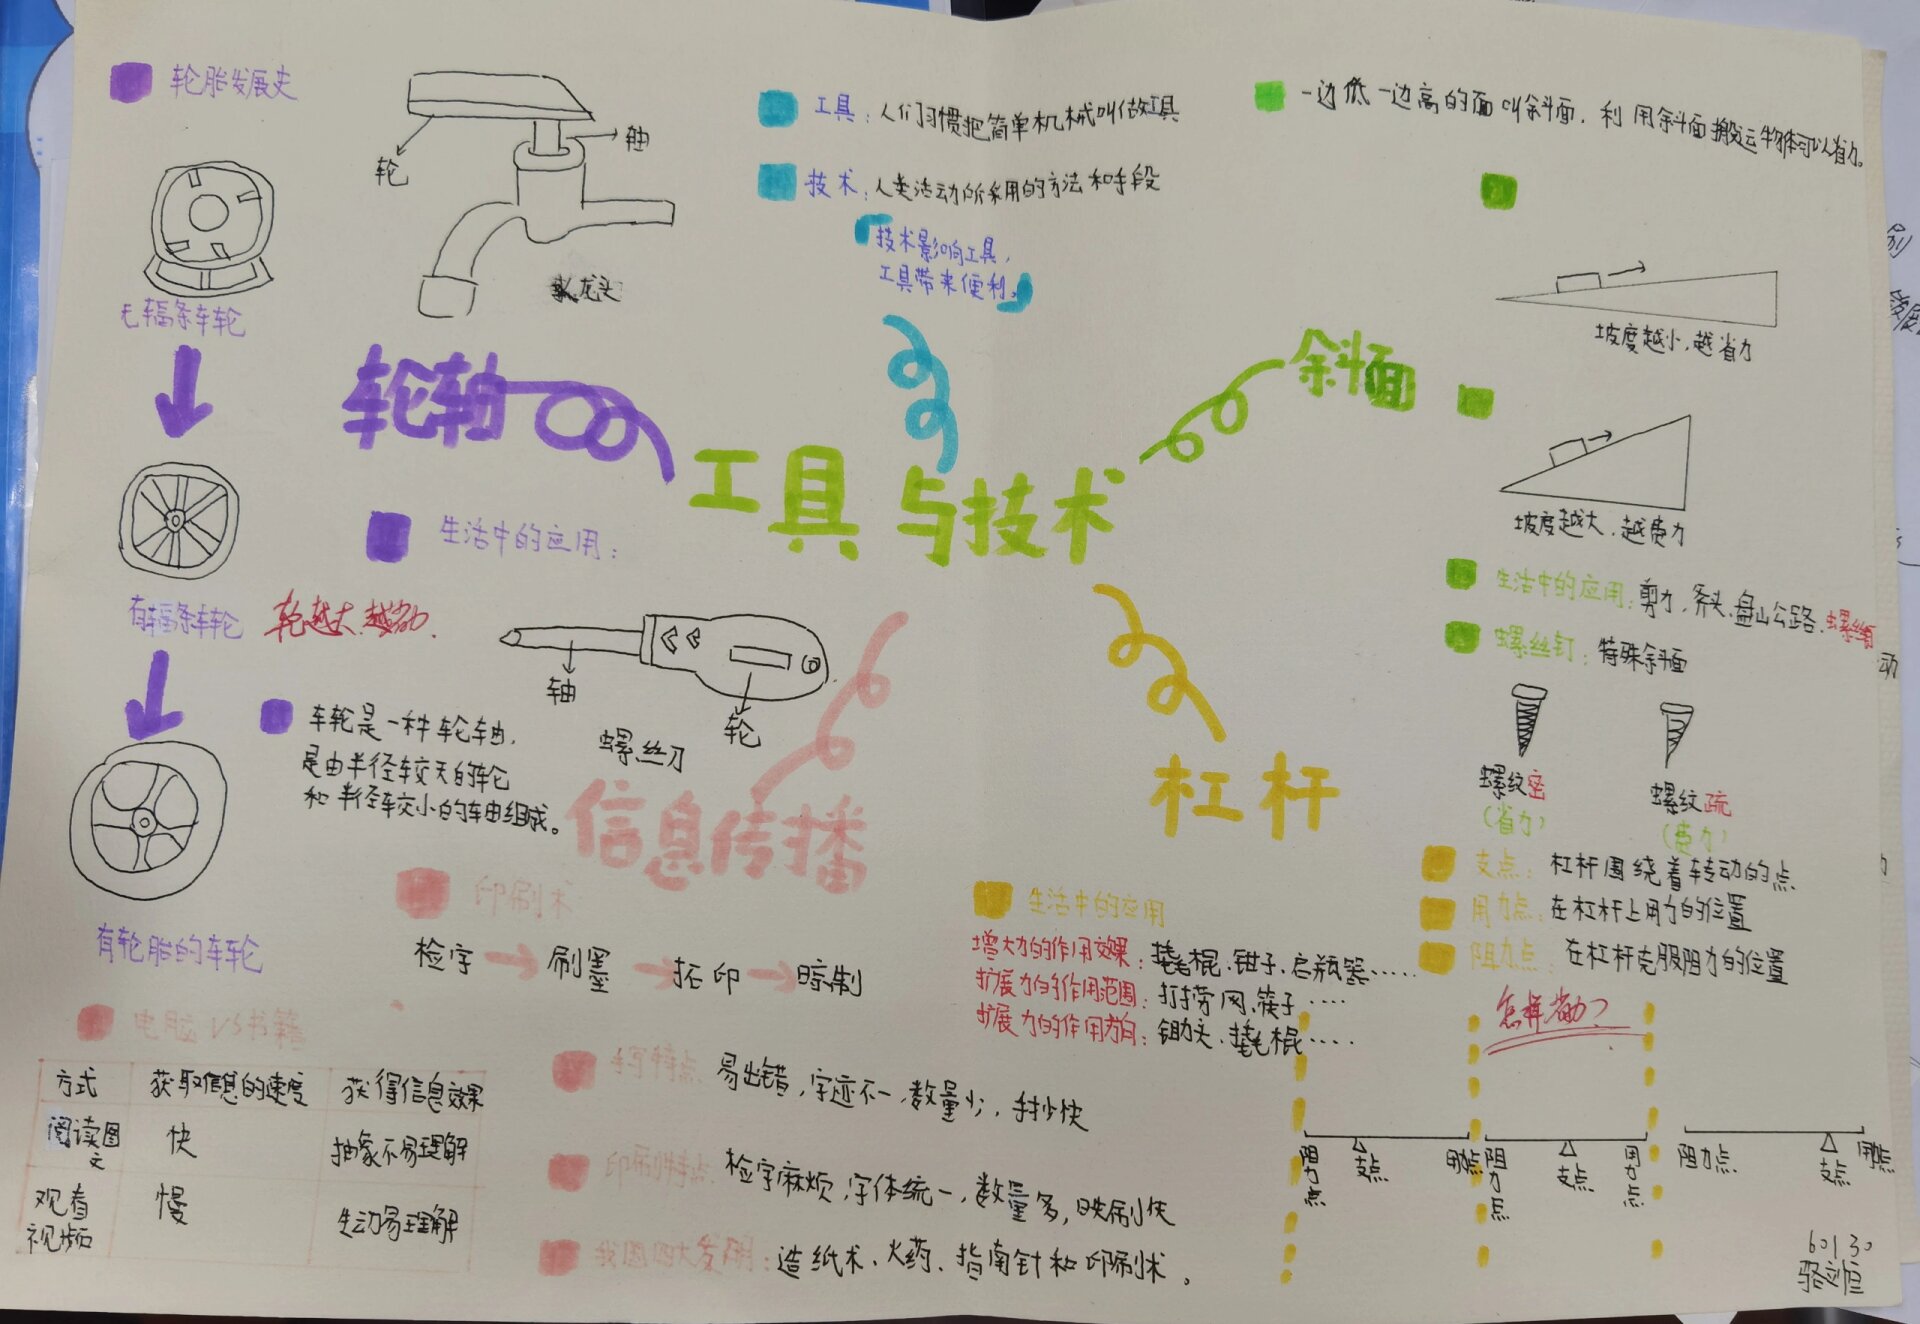 工具与技术
轮胎发展史
轮
轴
无辐条车轮
轮轴
有辐条车轮
轮越大,越省力.
有轮胎的车轮
生活中的应用:
轴
轮
螺丝刀
车轮是一种轮轴,
是由半径较大的轮
和半径较小的轴组成。
工具:人们习惯把简单机械叫做工具
技术:人类活动所采用的方法和手段
技术影响工具,
工具带来便利。
斜面
一边低一边高的面叫斜面,利用斜面搬运物体可以省力。
坡度越小,越省力
坡度越大,越费力
生活中的应用:剪刀,斧头、盘山公路、螺丝钉
螺丝钉:特殊斜面
螺纹密
(省力)
螺纹疏
(费力)
杠杆
支点:杠杆围绕着转动的点
用力点:在杠杆上用力的位置
阻力点:在杠杆克服阻力的位置
生活中的应用
增大力的作用效果:撬棍、钳子、启瓶器……
扩展力的作用范围:打捞网、筷子……
扩展力的作用方向:撬棍……
怎样省力?
阻力点
支点
用力点
阻力点
支点
用力点
阻力点
支点
用力点
信息传播
印刷术
检字 刷墨 拓印 晾制
电脑VS书籍
方式 获取信息的速度 获得信息效果
阅读图文 快 抽象不易理解
观看视频 慢 生动易理解
手写特点:易出错,字迹不一,数量少,
印刷特点:检字麻烦,字体统一,数量多,印刷快
我国四大发明:造纸术、火药、指南针和印刷术。
601 30